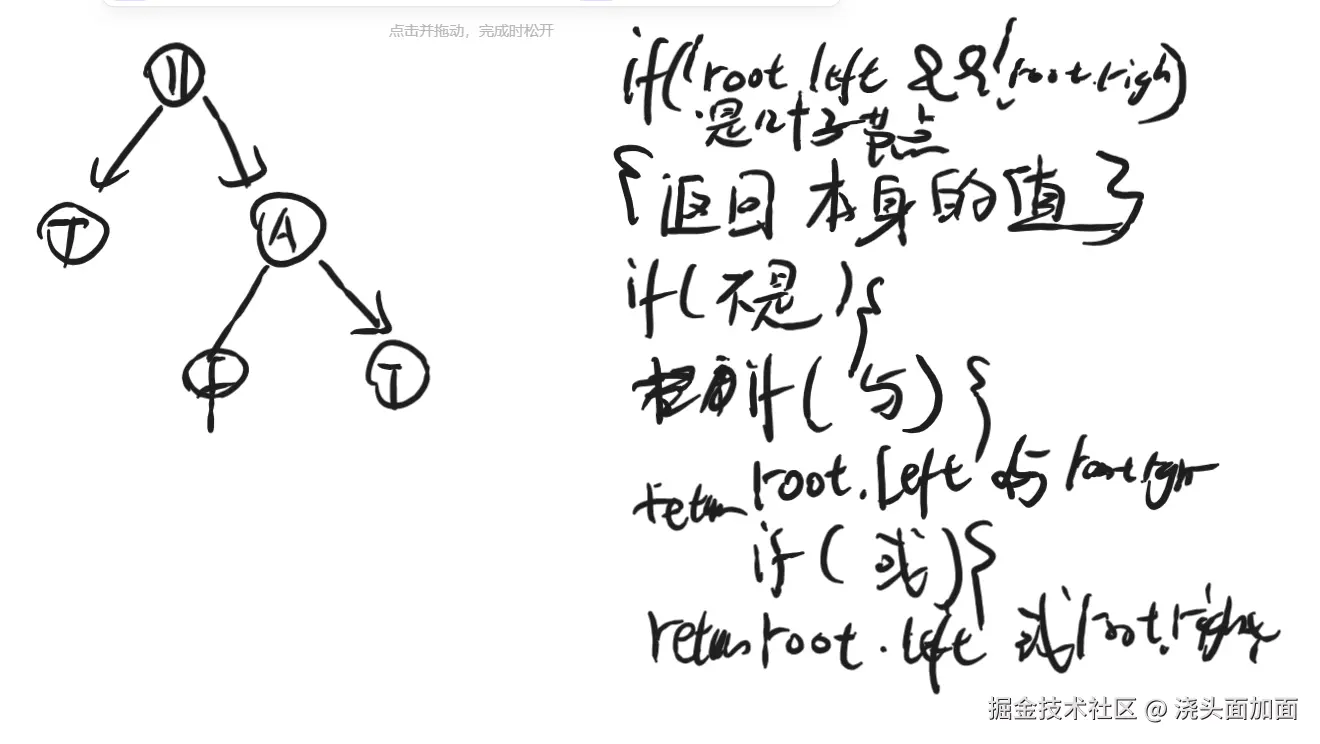 点击并拖动，完成时松开
||
T
A
T
if(!root.left && !root.righ)
是叶子节点
{返回本身的值}
if(不是){
if(与){
return root.left 与 root.right
if(或){
return root.left 或 root.right
掘金技术社区 @ 浇头面加面